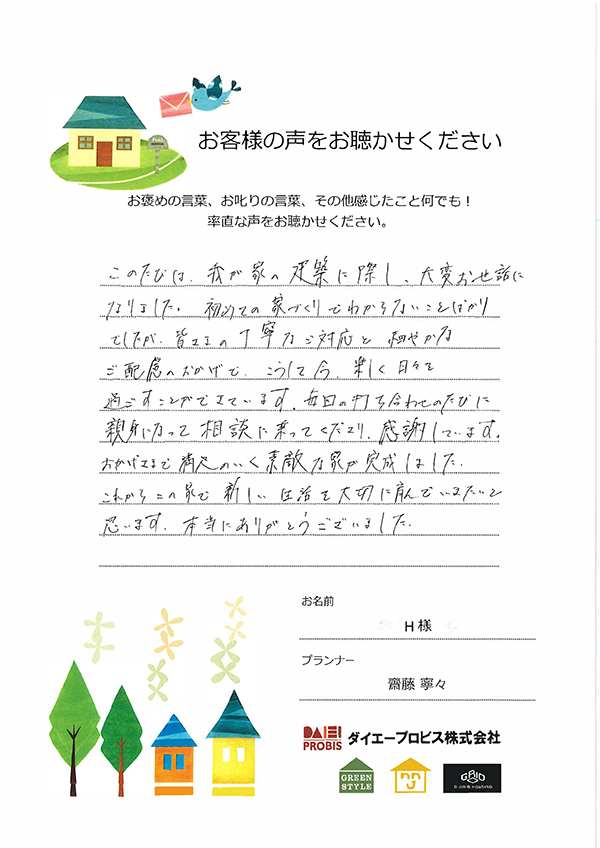 お客様の声をお聴かせください
お褒めの言葉、お叱りの言葉、その他感じたこと何でも！
率直な声をお聴かせください。
このたびは、我が家の建築に際し、大変お世話に
なりました。初めての家づくりでわからないことばかり
でしたが、皆さまの丁寧なご対応と細やかな
ご配慮のおかげで、こうして今、楽しく日々を
過ごすことができています。毎回の打ち合わせのたびに
親身になって相談に乗ってくださり、感謝しています。
おかげさまで満足のいく素敵な家が完成しました。
これからこの家で新しい生活を大切に育んでいきたいと
思います。本当にありがとうございました。
お名前
H様
プランナー
齋藤 寧々
DAIEI
PROBIS
ダイエープロビス株式会社
GREEN
STYLE
GRID